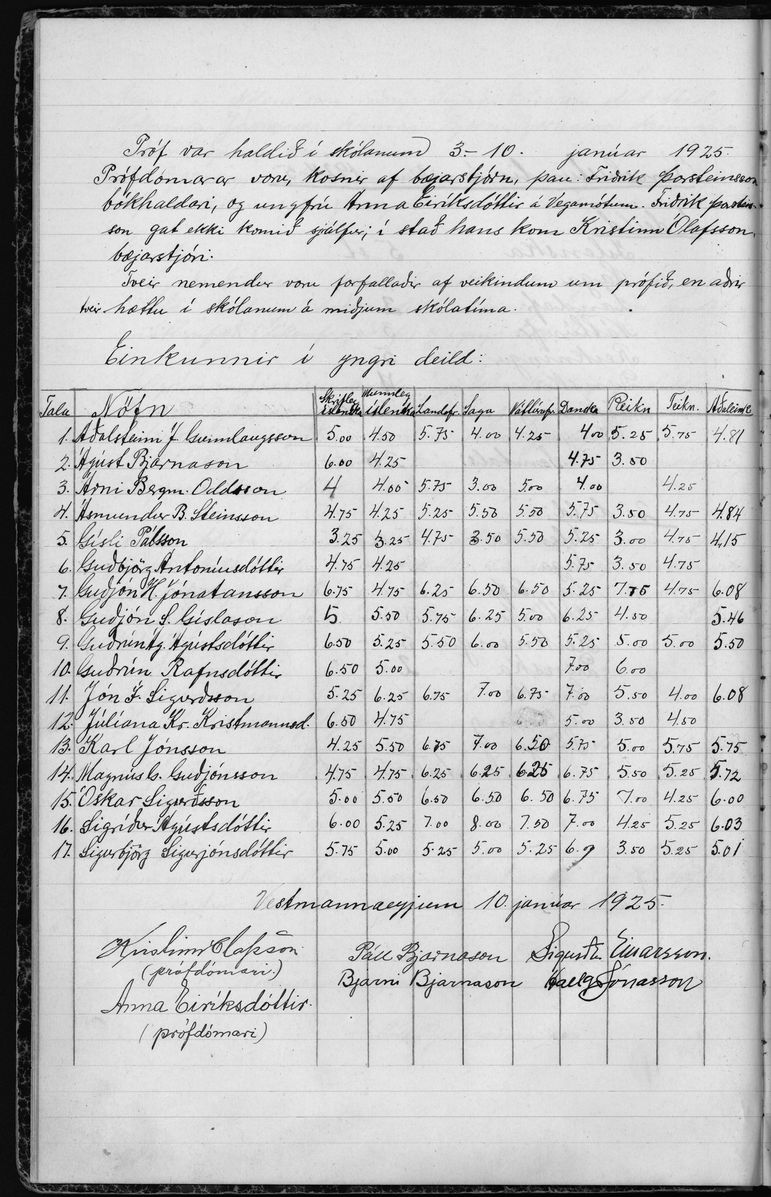 Próf var haldið í skólanum 3.-10. janúar 1925.
Prófdómarar voru, kosnir af bæjarstjórn, þau: Friðrik Þorsteinsson
bókhaldari, og ungfrú Anna Eiríksdóttir á Vegamótum. Friðrik Þorsteins-
son gat ekki komið sjálfur; í stað hans kom Kristinn Ólafsson,
bæjarstjóri.
Tveir nemendur voru forfallaðir af veikindum um prófið, en aðrir
tveir hættu í skólanum á miðjum skólatíma.
Einkunnir í yngri deild:
Tala Nöfn Skrifleg íslenska Munnleg íslenska Landafr. Saga Náttúrufr. Danska Reikn Teikn. Aðaleink
1. Aðalsteinn J. Gunnlaugsson 5.00 4.50 5.75 4.00 4.25 4.00 5.25 5.75 4.81
2. Ágúst Bjarnason 6.00 4.25 4.75 3.50
3. Árni Bergm. Oddsson 4 4.00 5.75 3.00 5.00 4.00 4.25
4. Ásmundur B. Steinsson 4.75 4.25 5.25 5.50 5.50 5.75 3.50 4.75 4.84
5. Gísli Pálsson 3.25 3.25 4.75 3.50 5.50 5.25 3.00 4.75 4,15
6. Guðbjörg Antoníusdóttir 4.75 4.25 5.75 3.50 4.75
7. Guðjón H. Jónatansson 6.75 4.75 6.25 6.50 6.50 5.25 7.75 4.75 6.08
8. Guðjón S. Gíslason 5 5.50 5.75 6.25 5.00 6.25 4.50 5.46
9. Guðrún Ág. Ágústsdóttir 6.50 5.25 5.50 6.00 5.50 5.25 5.00 5.00 5.50
10. Guðrún Rafnsdóttir 6.50 5.00 7.00 6.00
11. Jón S. Sigurðsson 5.25 6.25 6.75 7.00 6.75 7.00 5.50 4.00 6.08
12. Júlíana Kr. Kristmannsd. 6.50 4.75 5.00 3.50 4.50
13. Karl Jónsson 4.25 5.50 6.75 7.00 6.50 5.75 5.00 5.75 5.75
14. Magnús G. Guðjónsson 4.75 4.75 6.25 6.25 6.25 6.75 5.50 5.25 5.72
15. Óskar Sigurðsson 5.00 5.50 6.50 6.50 6.50 6.75 7.00 4.25 6.00
16. Sigríður Ágústsdóttir 6.00 5.25 7.00 8.00 7.50 7.00 4.25 5.25 6.03
17. Sigurbjörg Sigurjónsdóttir 5.75 5.00 5.25 5.00 5.25 6.9 3.50 5.25 5.01
Vestmannaeyjum 10. janúar 1925.
Kristinn Ólafsson Páll Bjarnason Sigurður Einarsson.
(prófdómari.) Bjarni Bjarnason Hallgr Jónasson
Anna Eiríksdóttir.
(prófdómari)